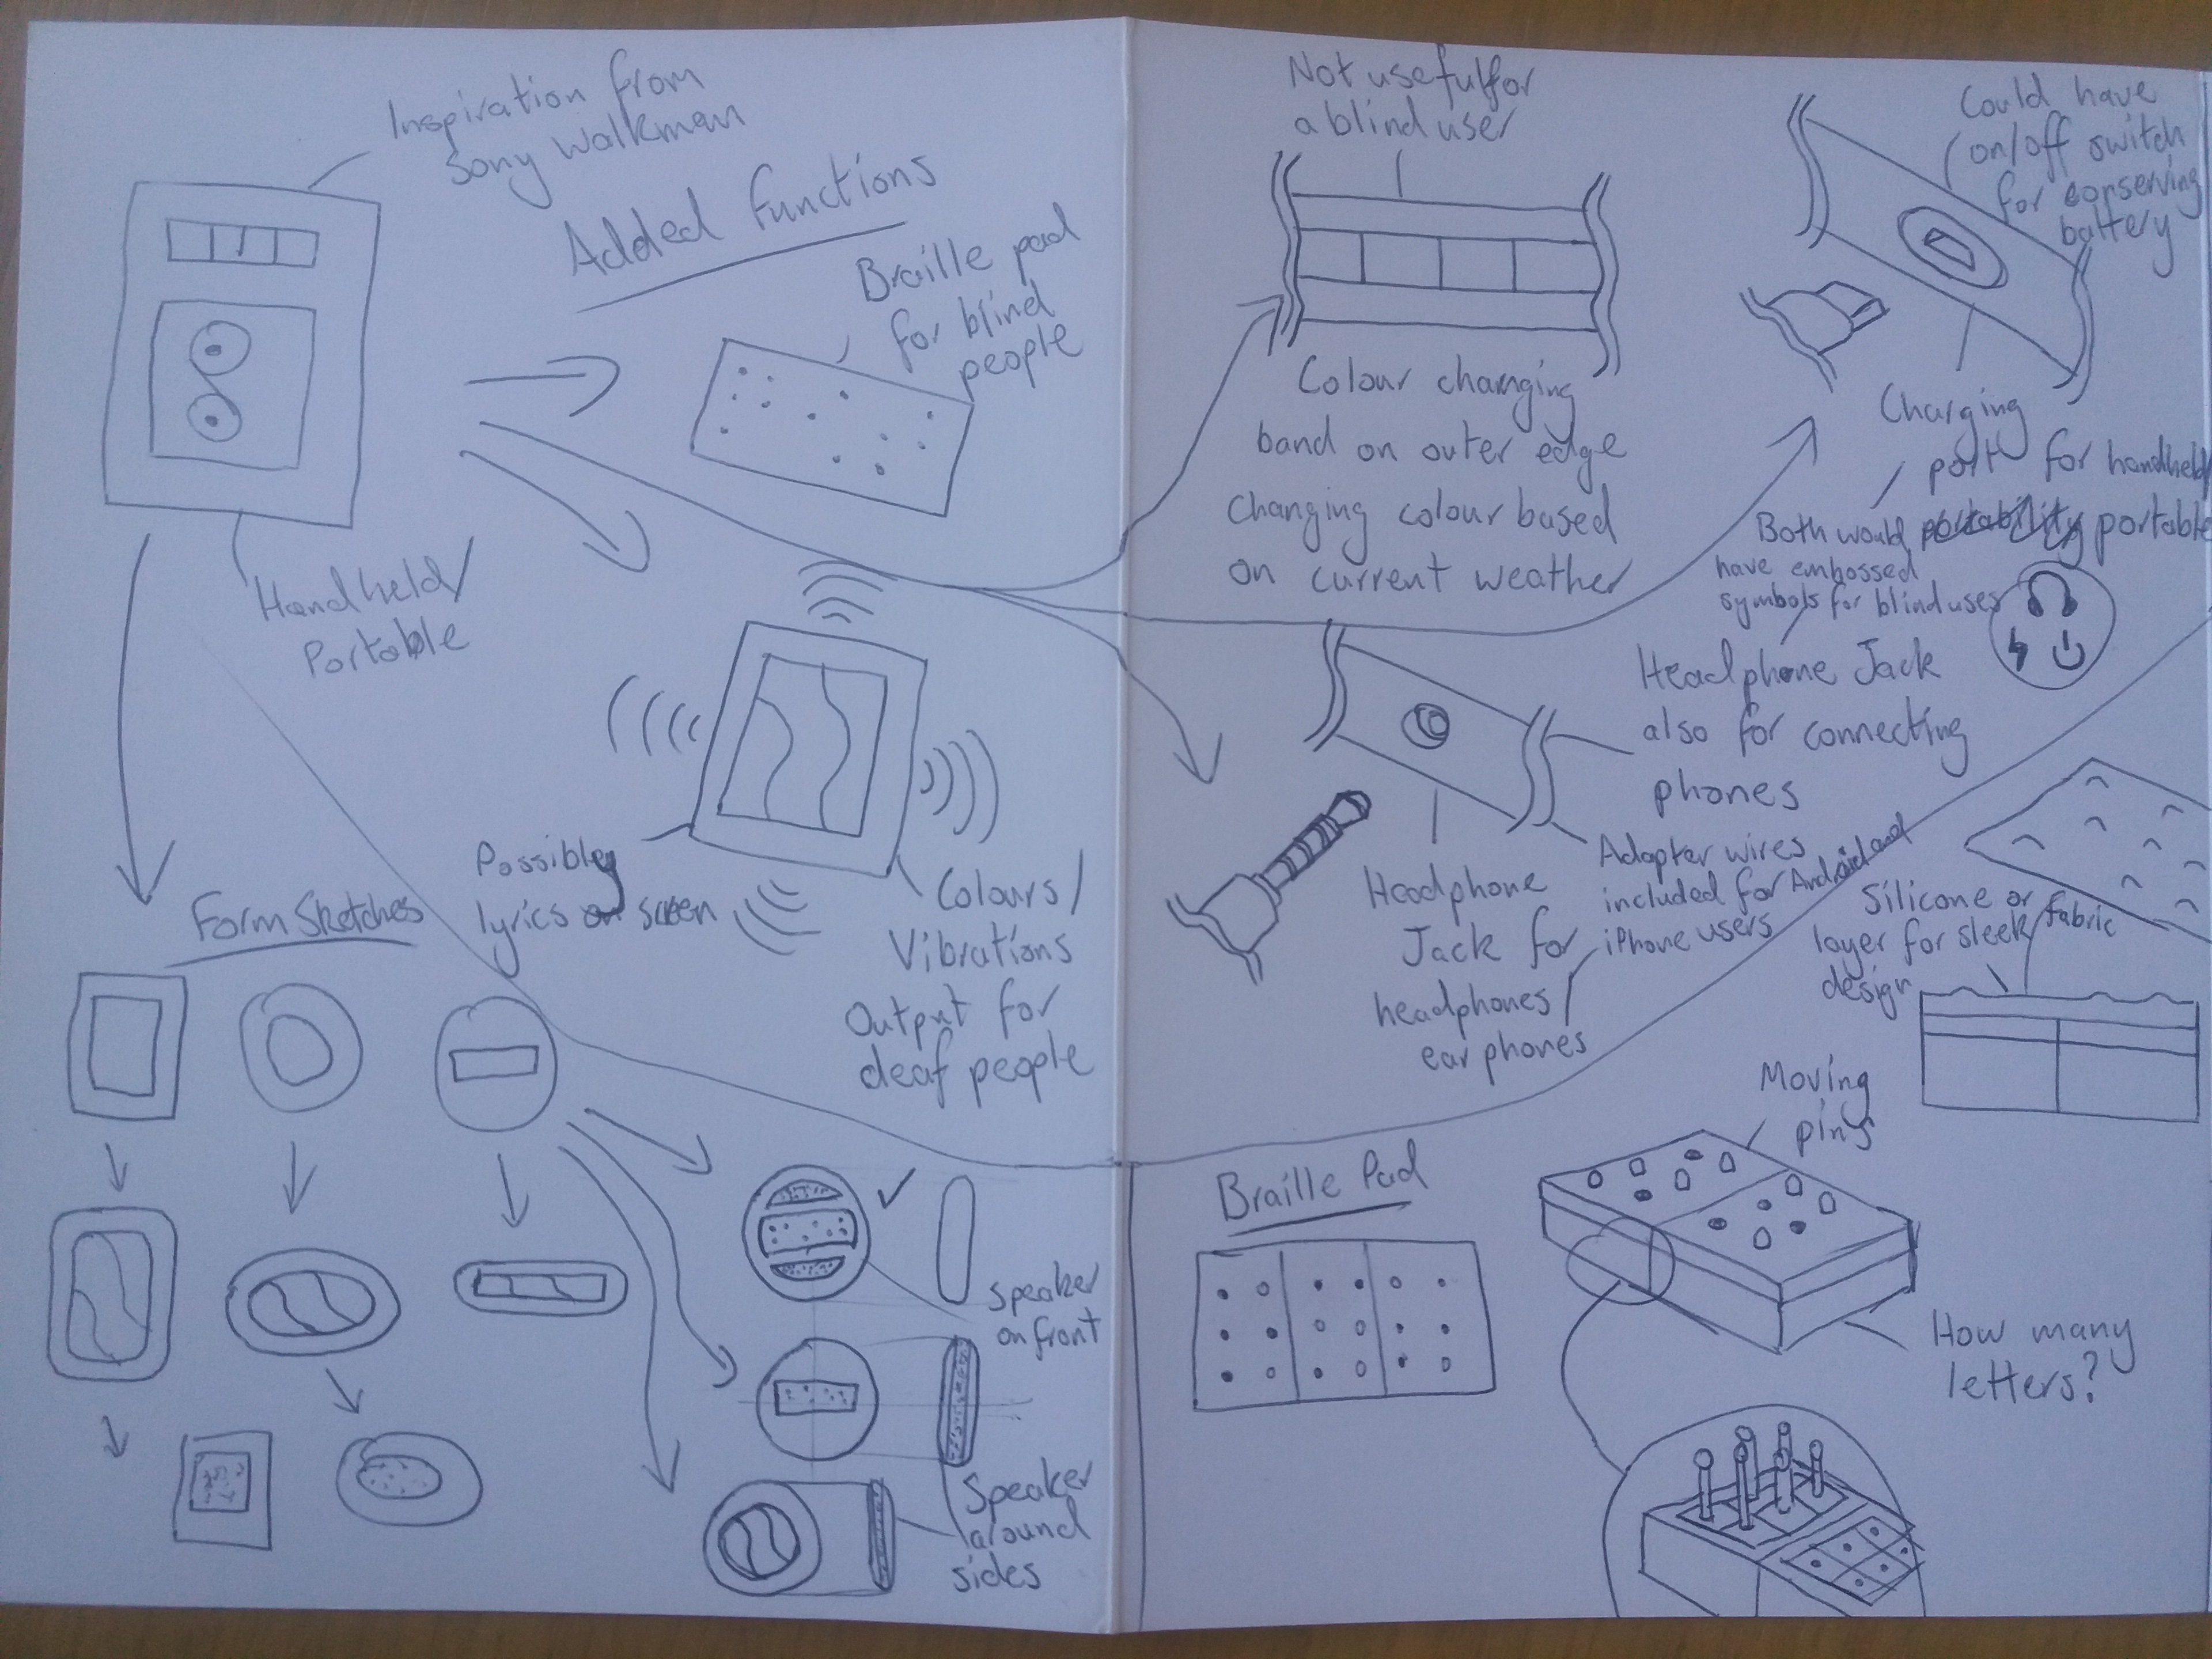 Inspiration from
Sony Walkman
Added Functions
Braille pad
for blind
people
Handheld/
Portable
Possibley
lyrics on screen
Colours/
Vibrations
Output for
deaf people
Form Sketches
speaker
on front
Speaker
around
sides
Not useful for
a blind user
Colour changing
band on outer edge
changing colour based
on current weather
Could have
on/off switch
for conserving
battery
Charging
port for handheld/
portable
Both would
have embossed
symbols for blind uses
Headphone Jack
also for connecting
phones
Adapter wires
included for Android and
iPhone users
Headphone
Jack for
headphones/
earphones
Silicone or fabric
layer for sleek
design
Moving
pins
Braille Pad
How many
letters?